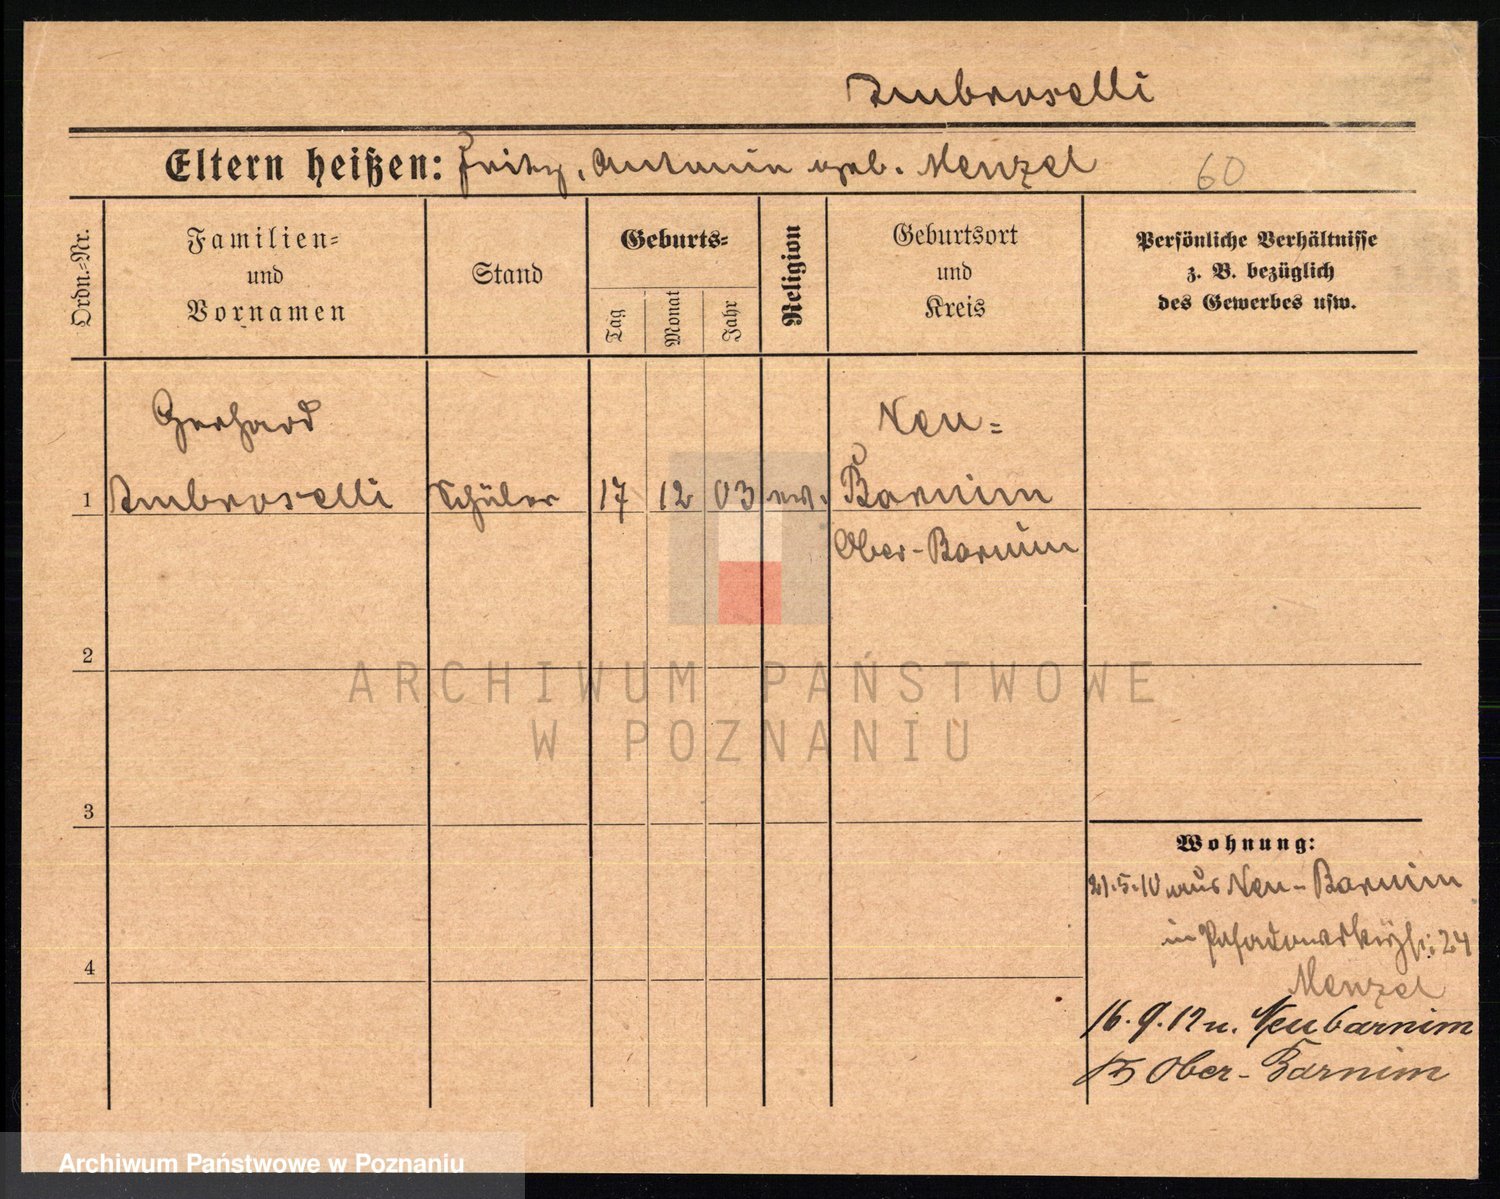 Ambroselli
Eltern heißen: Fritz, Antonin geb. Menzel 60
Ordn.=Nr.
Familien=
und
Vornamen
Stand
Geburts=
Tag
Monat
Jahr
Religion
Geburtsort
und
Kreis
Persönliche Verhältnisse
z. B. bezüglich
des Gewerbes usw.
Gerhard Neu=
1 Ambroselli Schüler 17 12 03 ev. Barnim
Ober-Barnim
2
ARCHIWUM PAŃSTWOWE
W POZNANIU
3
Wohnung:
21.5.10 aus Neu-Barnim
in 24
4
Menzel
16.9.12 n. Neubarnim
Ober-Barnim
Archiwum Państwowe w Poznaniu